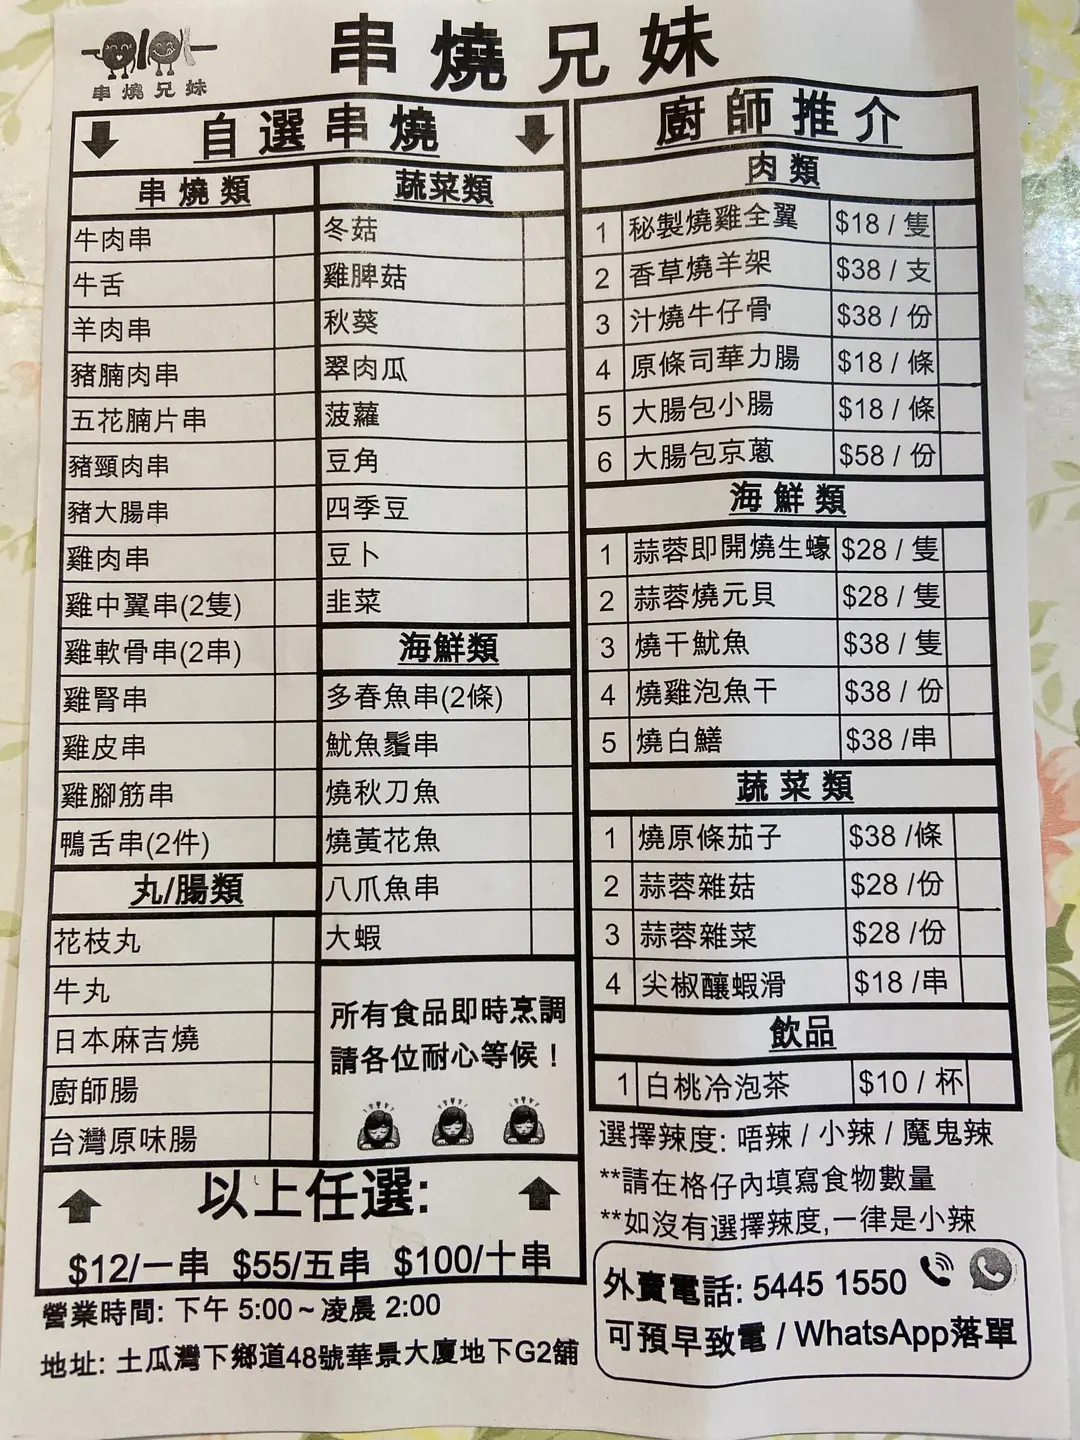 串燒兄妹
串燒兄妹
自選串燒
串燒類
牛肉串
牛舌
羊肉串
豬腩肉串
五花腩片串
豬頸肉串
豬大腸串
雞肉串
雞中翼串(2隻)
雞軟骨串(2串)
雞腎串
雞皮串
雞腳筋串
鴨舌串(2件)
丸/腸類
花枝丸
牛丸
日本麻吉燒
廚師腸
台灣原味腸
蔬菜類
冬菇
雞脾菇
秋葵
翠肉瓜
菠蘿
豆角
四季豆
豆卜
韭菜
海鮮類
多春魚串(2條)
魷魚鬚串
燒秋刀魚
燒黃花魚
八爪魚串
大蝦
所有食品即時烹調
請各位耐心等候！
以上任選:
$12/一串 $55/五串 $100/十串
營業時間: 下午 5:00~凌晨 2:00
地址: 土瓜灣下鄉道48號華景大廈地下G2舖
廚師推介
肉類
1 秘製燒雞全翼 $18 / 隻
2 香草燒羊架 $38 / 支
3 汁燒牛仔骨 $38 / 份
4 原條司華力腸 $18 / 條
5 大腸包小腸 $18 / 條
6 大腸包京蔥 $58 / 份
海鮮類
1 蒜蓉即開燒生蠔 $28 / 隻
2 蒜蓉燒元貝 $28 / 隻
3 燒干魷魚 $38 / 隻
4 燒雞泡魚干 $38 / 份
5 燒白鱔 $38 /串
蔬菜類
1 燒原條茄子 $38 /條
2 蒜蓉雜菇 $28 /份
3 蒜蓉雜菜 $28 /份
4 尖椒釀蝦滑 $18 /串
飲品
1 白桃冷泡茶 $10 / 杯
選擇辣度: 唔辣 / 小辣 / 魔鬼辣
**請在格仔內填寫食物數量
**如沒有選擇辣度,一律是小辣
外賣電話: 5445 1550
可預早致電 / WhatsApp落單